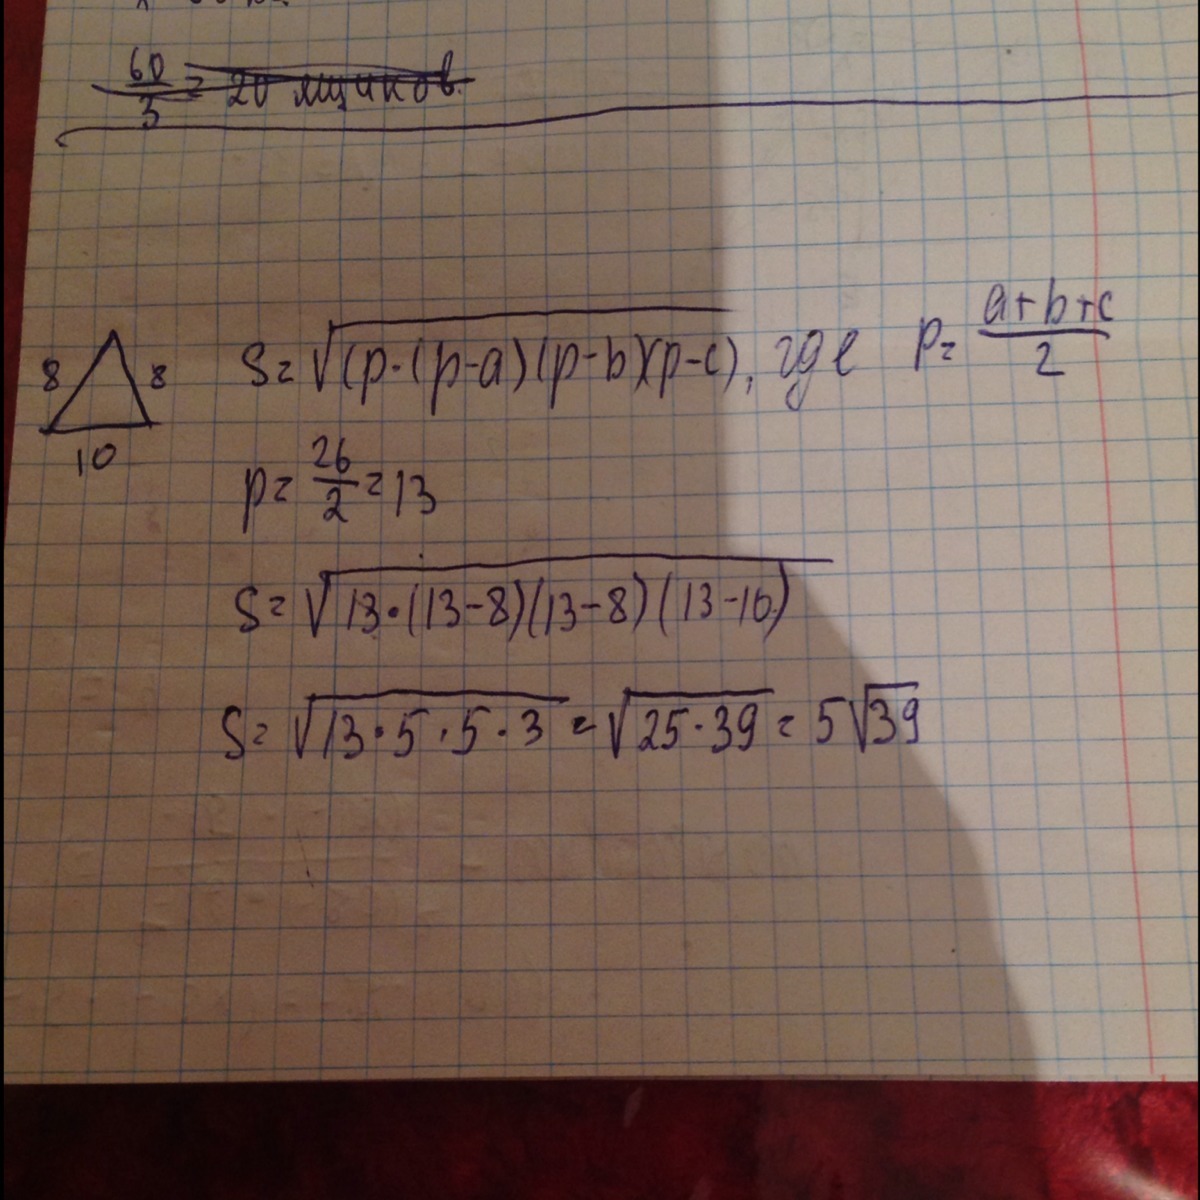 60/3 = 20 ящиков.
8 8
10
S = √(p·(p-a)(p-b)(p-c), где p = (a+b+c)/2
p = 26/2 = 13
S = √13·(13-8)(13-8)(13-10)
S = √13·5·5·3 = √25·39 = 5√39